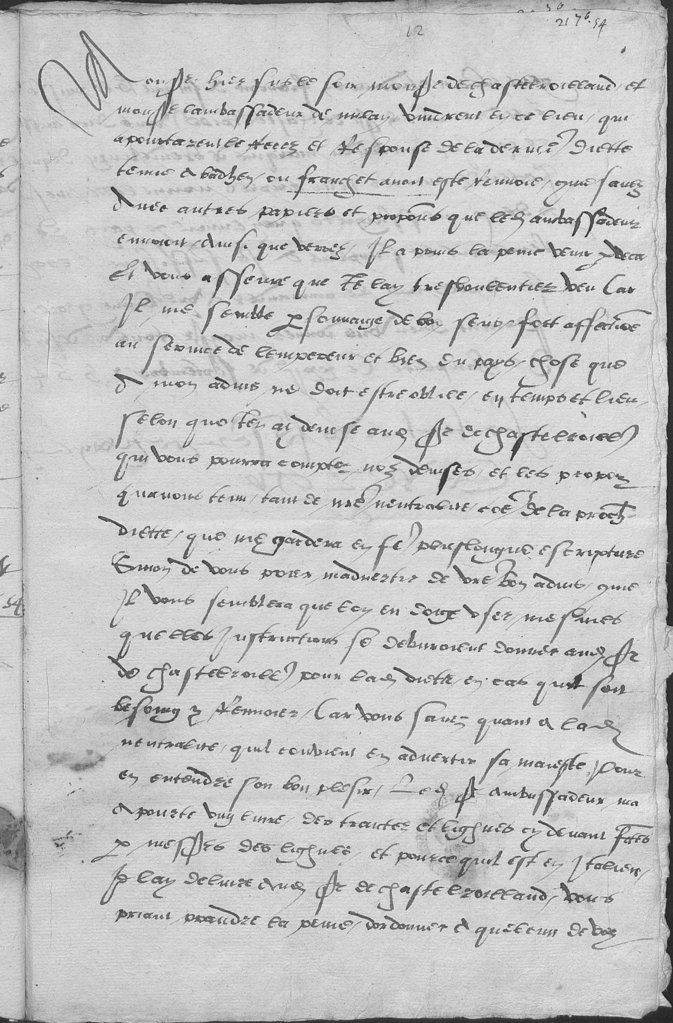 21 76. 54
12
Monsr hier sur le soir monsr de chastelroilland et
monsr lambassadeur de millan vindrent en ce lieu, qui
apourtarent le recez et response de la dernie diette
tenue a badhen, ou franchet avoit este renvoie, que savez
avec autres papiers et propos que led ambassadeur
envoioit, ainsi que verrez, Il a prins la peine venir
Et vous asseure que Je lay tresvoulentier veu Car
Il me semble personnaige de bon sens fort affectionne
au service de lempereur et bien du pays, chose que
a mon advis ne doit estre obliee, en temps et lieu
selon que Jen ay devise aud sr de chastelroill
qui vous pourra compter noz devises, et les propoz
quavons tenu, tant de nre neutralite, coe de la proch
diette, que me gardera en fe plus longue escripture
Sinon de vous prier madvertir de vre bon advis, que
Il vous semblera que lon en doige user, mesmes
quelles Instructions se debvroient donner aud sr
de chastelroill pour lad diette, en cas quil soit
besoing y renvoier, Car vous savez quant a lad
neutralite, quil convient en advertir sa majeste, pour
en entendre son bon plesir, Led sr ambassadeur ma
apourte ung livre, des traictez et lighues cy devant fetes
p messrs des lighues, et pource quil est en Italien,
Je lay delivre aud sr de chastelroilland, vous
priant prandre la peine, dordonner a quelcun de voz